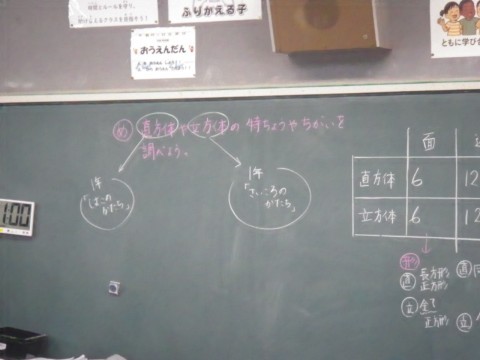 ふりかえる子
おうえんだん
ともに学び合
め 直方体や立方体の特ちょうやちがいを
調べよう。
1年
「はこの
かたち」
1年
「さいころの
かたち」
1:00
面
直方体 6 12
立方体 6 12
形
直 長方形
正方形
立 全て
正方形
直
立